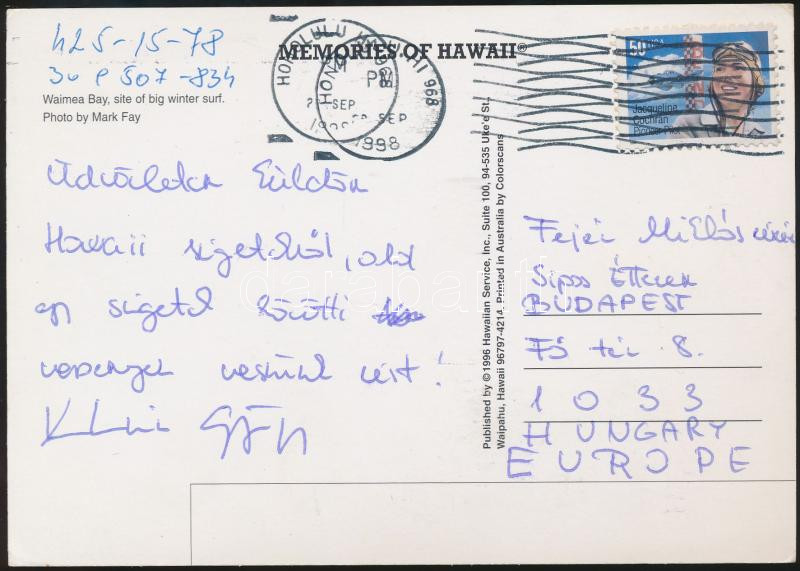 425-15-78
MEMORIES OF HAWAII®
Waimea Bay, site of big winter surf.
Photo by Mark Fay
HONOLULU
HI 968
PM
SEP
SEP
1998
50 USA
Jacqueline
Cochran
Pioneer Pilot
Hawaii szigetekről, ahol
egy szigetek közötti
versenyen vettünk részt!
Published by ©1996 Hawaiian Service, Inc., Suite 100, 94-535 Uke'e St.,
Waipahu, Hawaii 96797-4214. Printed in Australia by Colorscans
Miklós
Sipos Étterem
BUDAPEST
Fő tér 8.
1033
HUNGARY
EUROPE